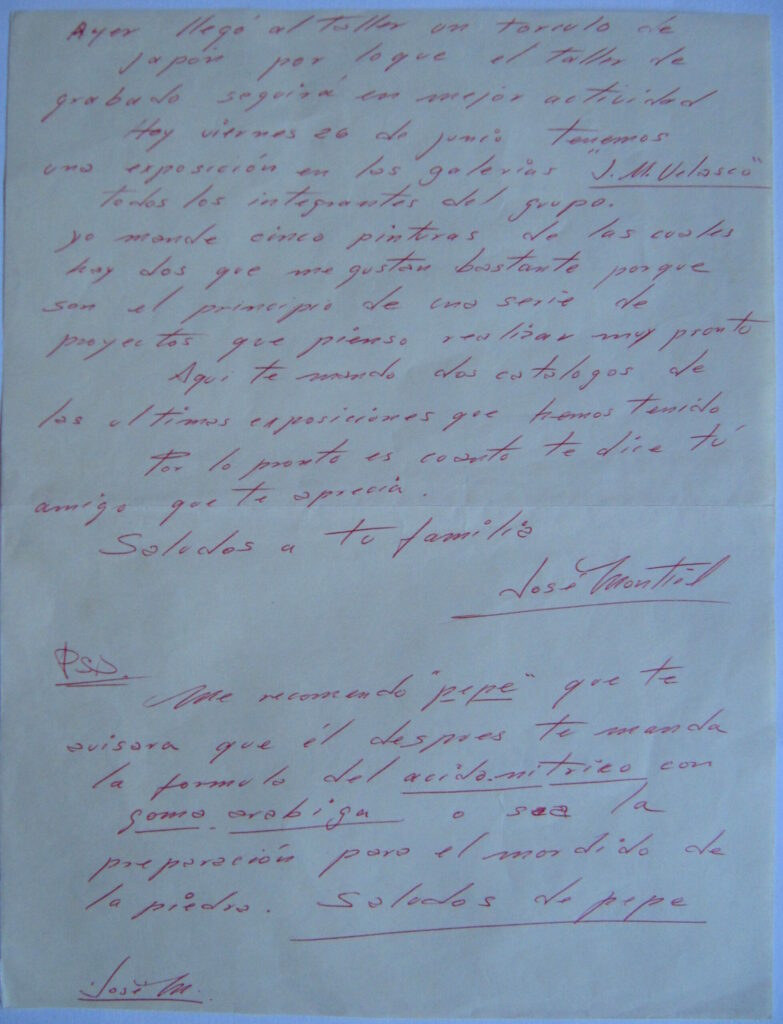 Ayer llegó al taller un torculo de
Japón por loque el taller de
grabado seguirá en mejor actividad
Hoy viernes 26 de junio tenemos
una exposición en las galerias "J. M. Velasco"
todos los integrantes del grupo.
yo mande cinco pinturas de las cuales
hay dos que me gustan bastante porque
son el principio de una serie de
proyectos que pienso realizar muy pronto
Aqui te mando dos catalogos de
las ultimas exposiciones que hemos tenido
Por lo pronto es cuanto te dice tú
amigo que te aprecia.
Saludos a tu familia
José Montiel
PSD.
Me recomendo "pepe" que te
avisara que él despues te manda
la formula del acido.nitrico con
goma.arabiga o sea la
preparación para el mordido de
la piedra. Saludos de pepe
José M.